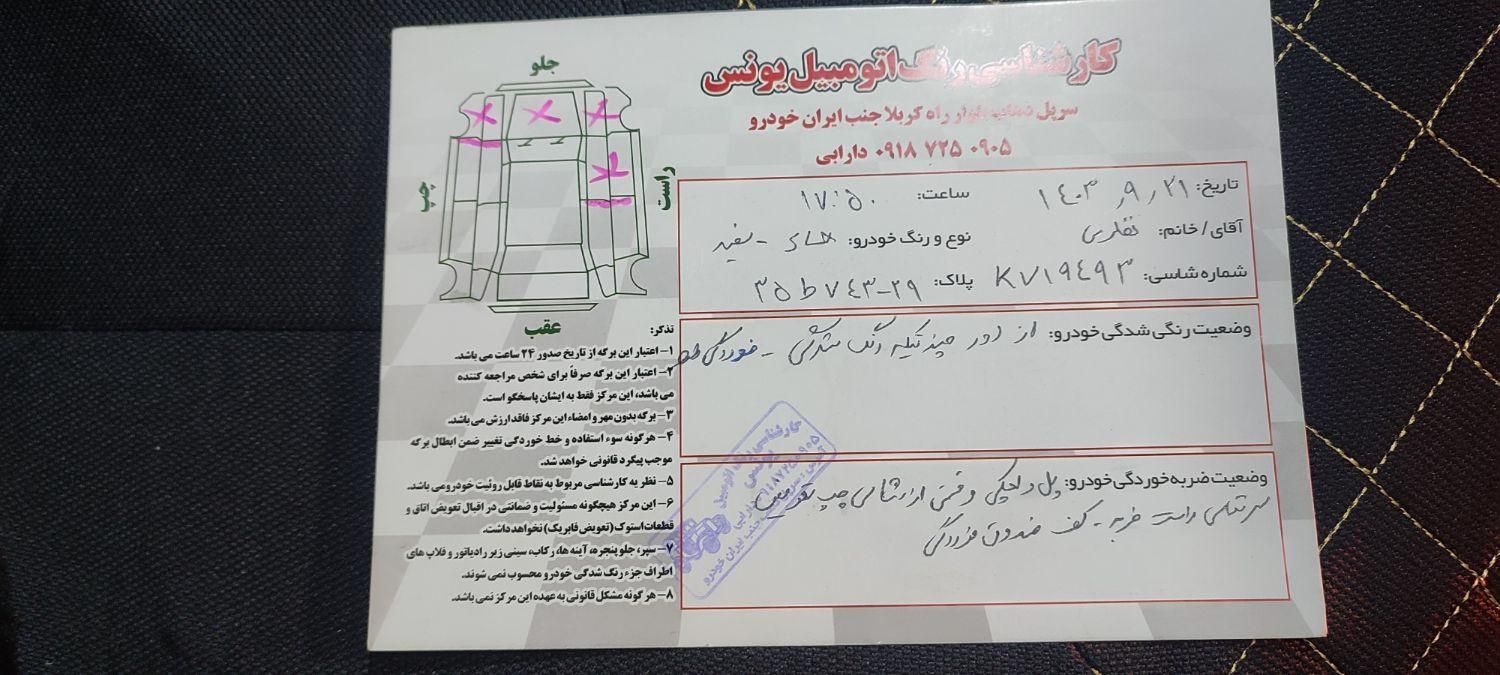 کارشناسی رنگ اتومبیل یونس
سرپل ذهاب بلوار راه کربلا جنب ایران خودرو
۰۹۱۸ ۷۲۵ ۰۹۰۵ دارابی
جلو
چپ
راست
عقب
تاریخ: ۱۴۰۳ / ۹ / ۲۱ ساعت: ۱۷:۵۰
آقای / خانم: نوع و رنگ خودرو: - سفید
شماره شاسی: K۷۱۹۴۹۳ پلاک: ۳۵ ط ۷۴۳-۲۹
وضعیت رنگی شدگی خودرو: از دور چند تیکه رنگ شدگی - خوردگی
وضعیت ضربه خوردگی خودرو: پل و لچکی و قسمتی از شاسی چپ
سرشاسی راست ضربه - کف صندوق خوردگی
تذکر:
۱- اعتبار این برگه از تاریخ صدور ۲۴ ساعت می باشد.
۲- اعتبار این برگه صرفاً برای شخص مراجعه کننده
می باشد، این مرکز فقط به ایشان پاسخگو است.
۳- برگه بدون مهر و امضاء این مرکز فاقد ارزش می باشد.
۴- هرگونه سوء استفاده و خط خوردگی تغییر ضمن ابطال برگه
موجب پیگرد قانونی خواهد شد.
۵- نظریه کارشناسی مربوط به نقاط قابل روئیت خودرو می باشد.
۶- این مرکز هیچگونه مسئولیت و ضمانتی در اقبال تعویض اتاق و
قطعات استوک (تعویض فابریک) نخواهد داشت.
۷- سپر، جلو پنجره، آینه ها، رکاب، سینی زیر رادیاتور و فلاپ های
اطراف جزء رنگ شدگی خودرو محسوب نمی شوند.
۸- هرگونه مشکل قانونی به عهده این مرکز نمی باشد.
کارشناسی رنگ اتومبیل
یونس
۰۹۱۸۷۲۵۰۹۰۵ دارابی